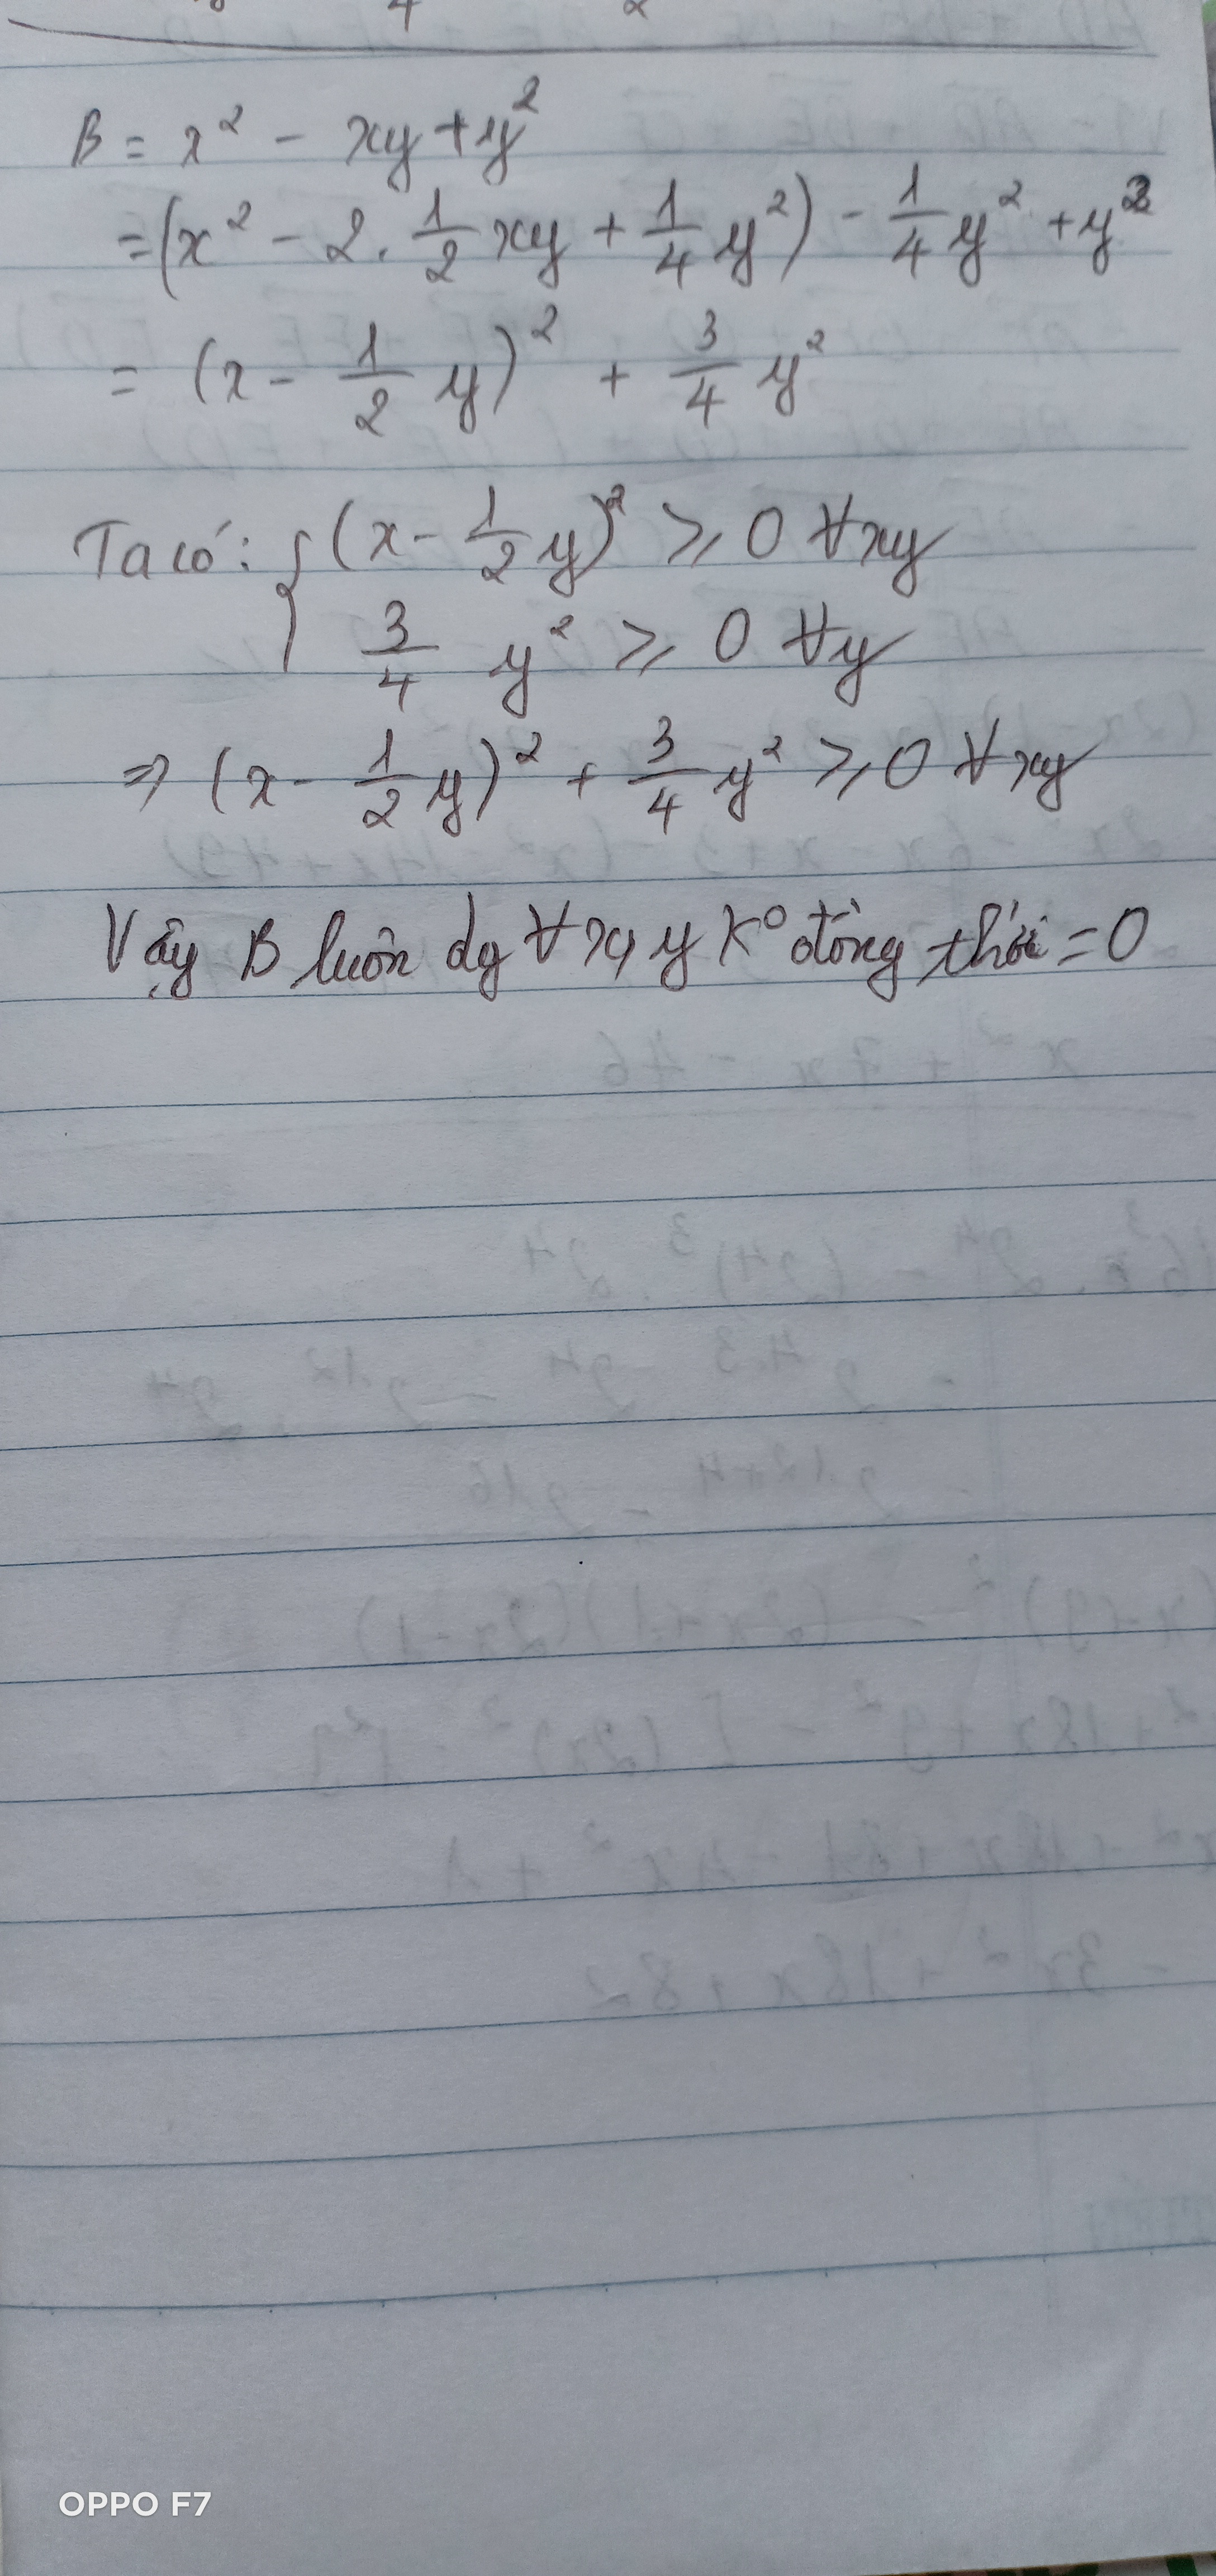 B = x² - xy + y²
= (x² - 2. 1/2 xy + 1/4 y²) - 1/4 y² + y²
= (x - 1/2 y)² + 3/4 y²
Ta có: { (x - 1/2 y)² ⩾ 0 ∀xy
3/4 y² ⩾ 0 ∀y
=> (x - 1/2 y)² + 3/4 y² ⩾ 0 ∀xy
Vậy B luôn dg ∀x, y K° đồng thời = 0
OPPO F7